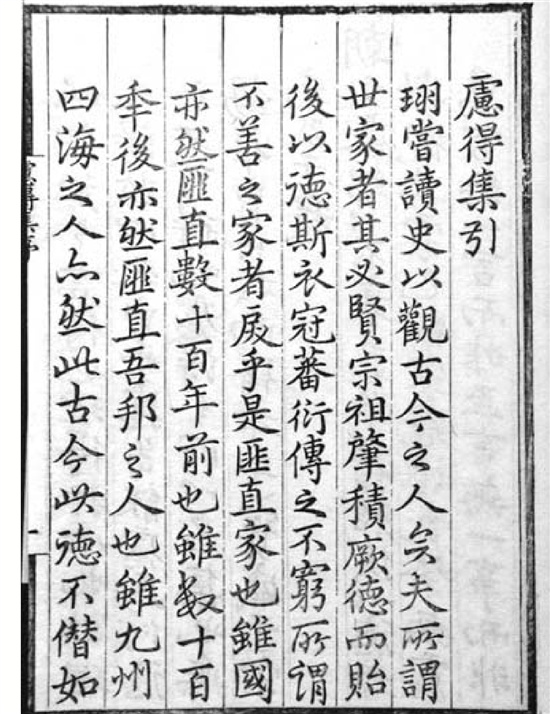 慮得集引
珝嘗讀史以觀古今之人矣夫所謂
世家者其必賢宗祖肇積厥德而貽
後以德斯衣冠蕃衍傳之不窮所謂
不善之家者乎是匪直家也雖國
亦然匪直數十百年前也雖数十百
秊後亦然匪直吾邦之人也雖九州
四海之人亦然此古今此德不僭如